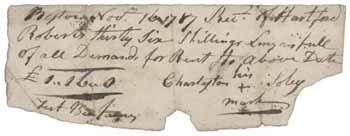 Boston Novr. 16 1787 Recd. of Hartford
Roberts thirty Six Shillings in full
of all Demands for Rent to Above Date
£1..16..0 his
Charleston + Soley
mark
Test